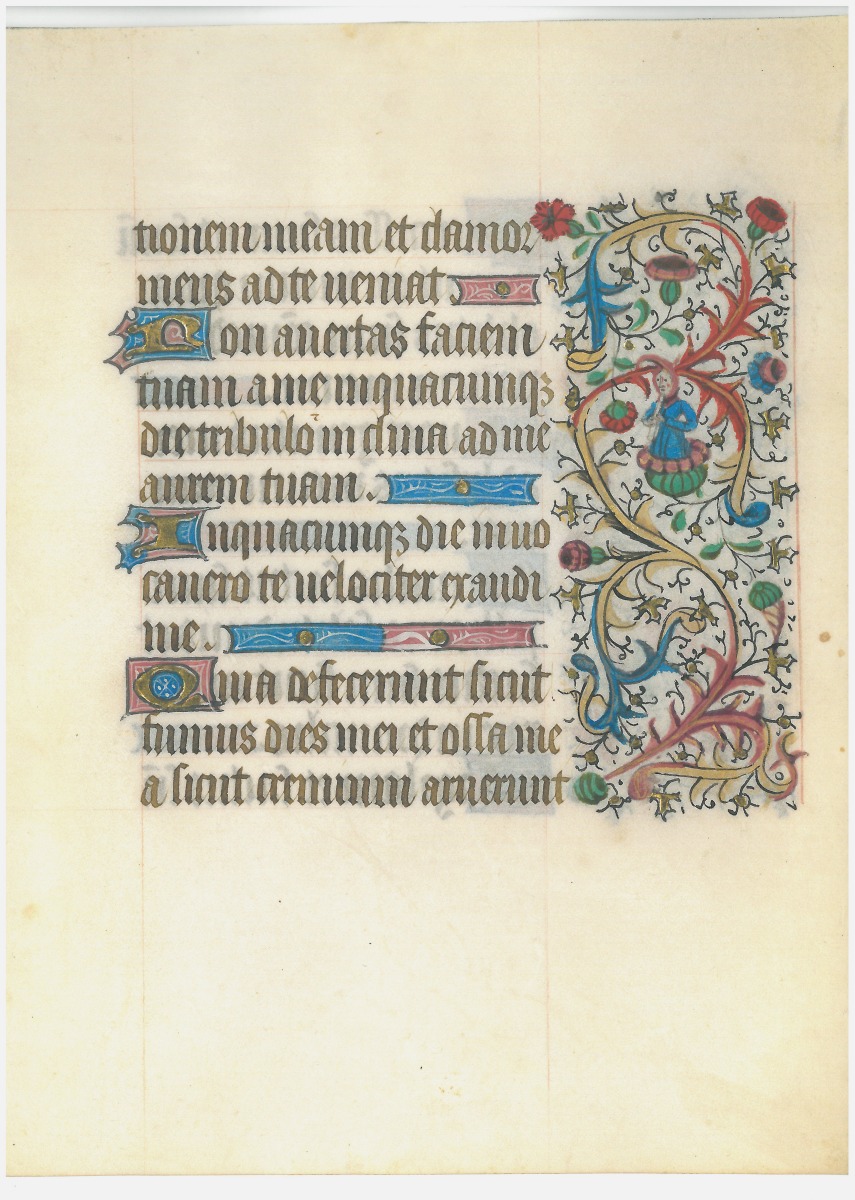 tionem meam et clamor
meus ad te veniat.
Non avertas faciem
tuam a me inquacunqꝫ
die tribulor̄ inclina ad me
aurem tuam.
Inquacunqꝫ die invo
cavero te velociter exaudi
me.
Quia defecerunt sicut
fumus dies mei et ossa me
a sicut cremium aruerunt